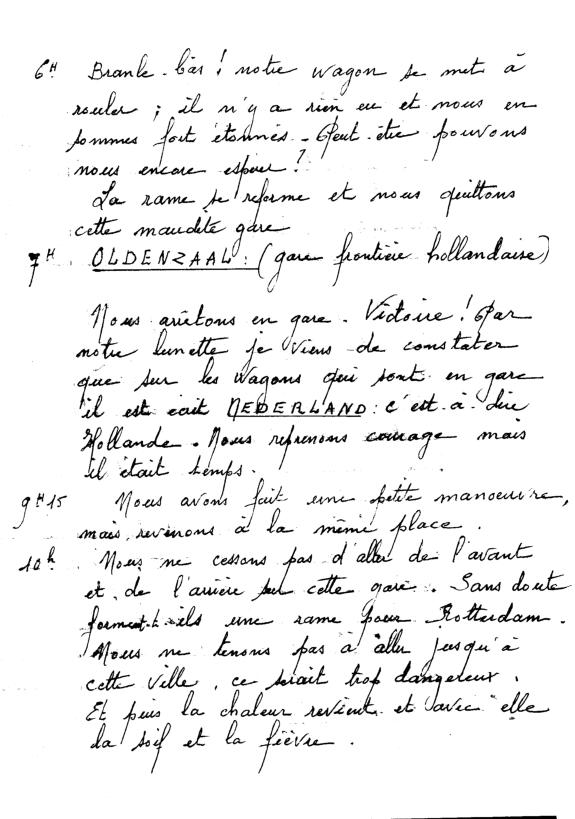 6H Branle-bas ! notre wagon se met à
rouler ; il n'y a rien eu et nous en
sommes fort étonnés - Peut-être pouvons
nous encore espérer ?
La rame se reforme et nous quittons
cette maudite gare
7H OLDENZAAL : (gare frontière hollandaise)
Nous arrêtons en gare. Victoire ! Par
notre lunette je viens de constater
que sur les wagons qui sont en gare
il est écrit NEDERLAND : c'est à dire
Hollande. Nous reprenons courage mais
il était temps.
9H15 Nous avons fait une petite manoeuvre,
mais revenons à la même place.
10h. Nous ne cessons pas d'aller de l'avant
et de l'arrière sur cette gare. Sans doute
forment-ils une rame pour Rotterdam.
Nous ne tenons pas à aller jusqu'à
cette ville, ce serait trop dangereux.
Et puis la chaleur revient et avec elle
la soif et la fièvre.